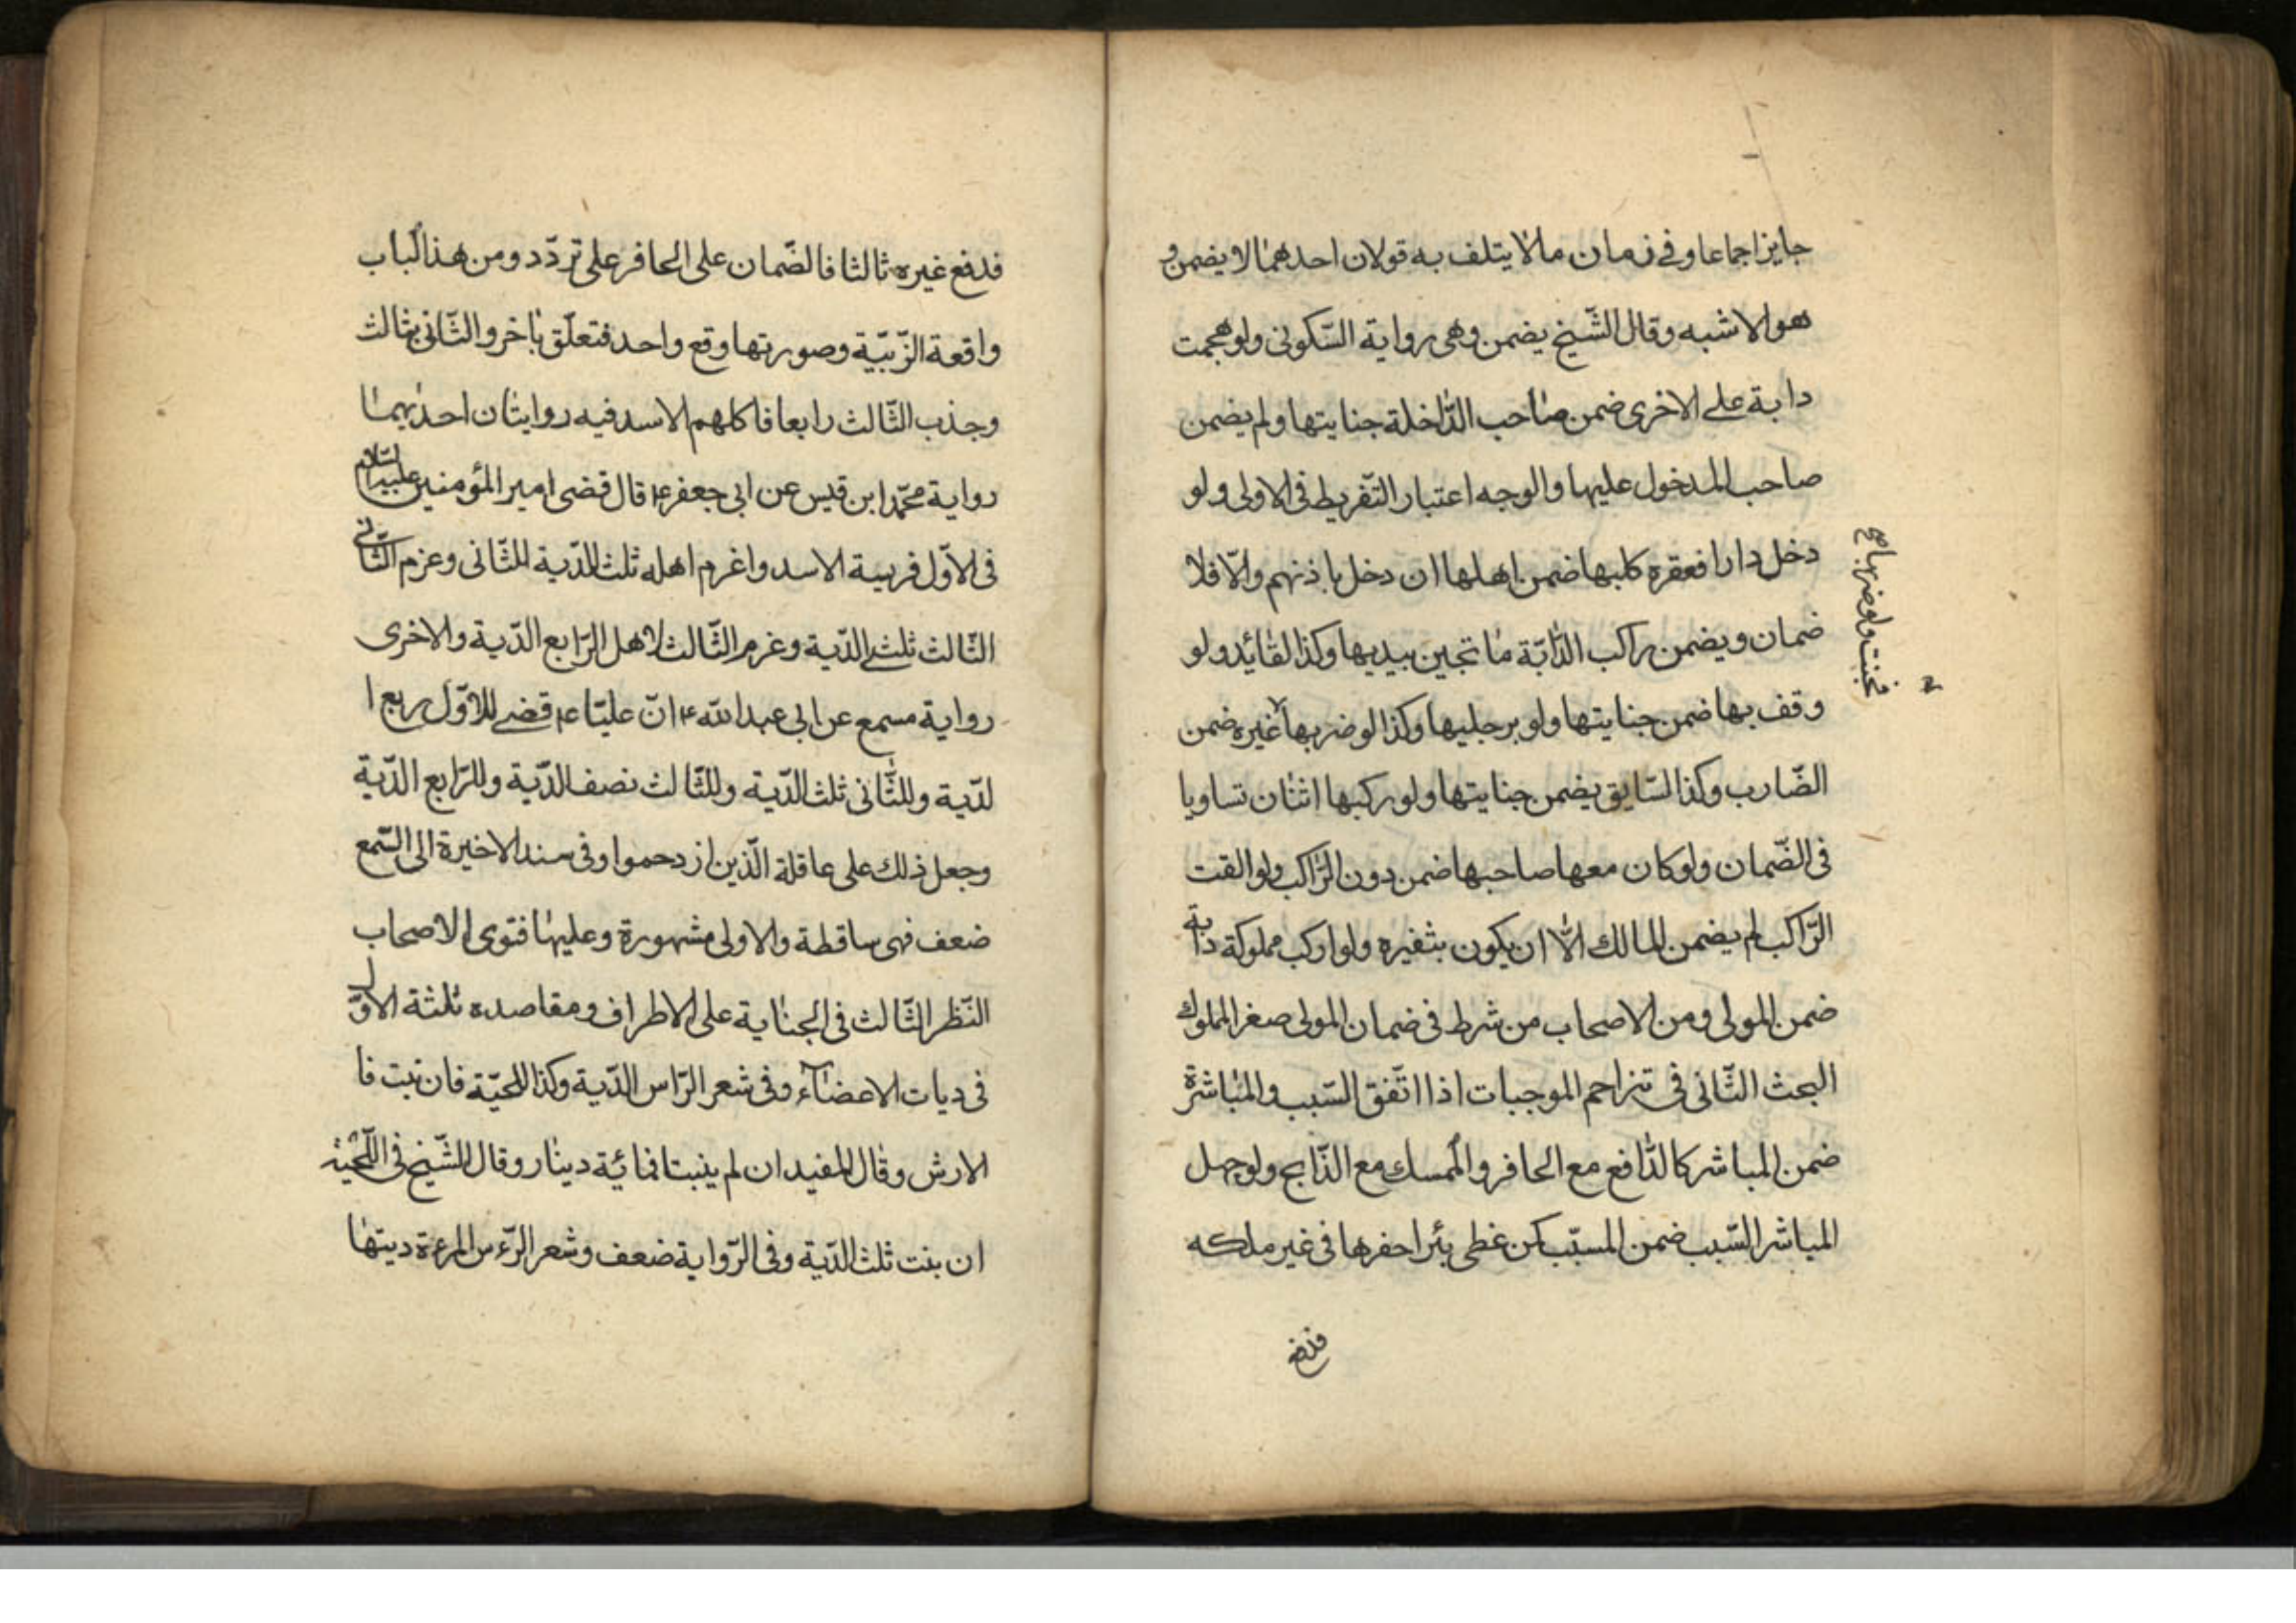 جايزا جماعا وفى زمان مالا يتلف به قولان احدهما لا يضمن و
هو الاشبه وقال الشّيخ يضمن وهى رواية السّكونى ولو هجمت
دابة على الاخرى ضمن صاحب الدّاخلة جنايتها ولم يضمن
صاحب المدخول عليها والوجه اعتبار التّفريط فى الاولى ولو
دخل دارا فعقره كلبها ضمن اهلها ان دخل باذنهم والّا فلا
ضمان ويضمن راكب الدّابّة ما تجين بيديها وكذا لقائد ولو
وقف بها ضمن جنايتها ولو برجليها وكذا لو ضربها غيره ضمن
الضّارب وكذا لسّايق يضمن جنايتها ولو ركبها اثنان تساويا
فى الضّمان ولو كان معها صاحبها ضمن دون الرّاكب ولو القت
الرّاكب لم يضمن المالك الّا ان يكون بثفيره ولو اركب مملوكة دابة
ضمن المولى ومن الاصحاب من شرط فى ضمان المولى صغر المملوك
البحث الثّانى فى تزاحم الموجبات اذا اتّفق السّبب والمباشرة
ضمن المباشر كالدّافع مع الحافر والممسك مع الذّابح ولو جهل
المباشر السّبب ضمن المسبّب كمن غطى بئرا حفرها فى غير ملكه
فدفع
فجنت ولو ضربها صح
فدفع غيره ثالثا فالضّمان على الحافر على تردّد ومن هذا لباب
واقعة الزّبيّة وصورتها وقع واحد فتعلّق باخر والثّانى بثالث
وجذب الثّالث رابعا فاكلهم الاسد فيه روايتان احديهما
رواية محمّد ابن قيس عن ابى جعفر ع قال قضى امير المؤمنين عليه السلام
فى الاوّل فريسة الاسد واغرم اهله ثلث الدّية للثّانى وعزم الثّانى
الثّالث ثلثى الدّية وغرم الثّالث لاهل الرّابع الدّية والاخرى
رواية مسمع عن ابى عبد الله ع انّ عليّا ع قضى للاوّل ربع ا
لدّية وللثّانى ثلث الدّية وللثّالث نصف الدّية وللرّابع الدّية
وجعل ذلك على عاقلة الّذين ازدحموا وفى سند الاخيرة الى السّمع
ضعف فهى ساقطة والاولى مشهورة وعليها فتوى الاصحاب
النّظر الثّالث فى الجناية على الاطراف ومقاصده ثلثة الاوّل
فى ديات الاعضاء وفى شعر الرّاس الدّية وكذا اللحيّة فان نبت فا
الارش وقال المفيد ان لم ينبتا فمائة دينار وقال الشّيخ فى اللّحية
ان بنت ثلث الدّية وفى الرّواية ضعف وشعر الرّءس المرءة ديتها